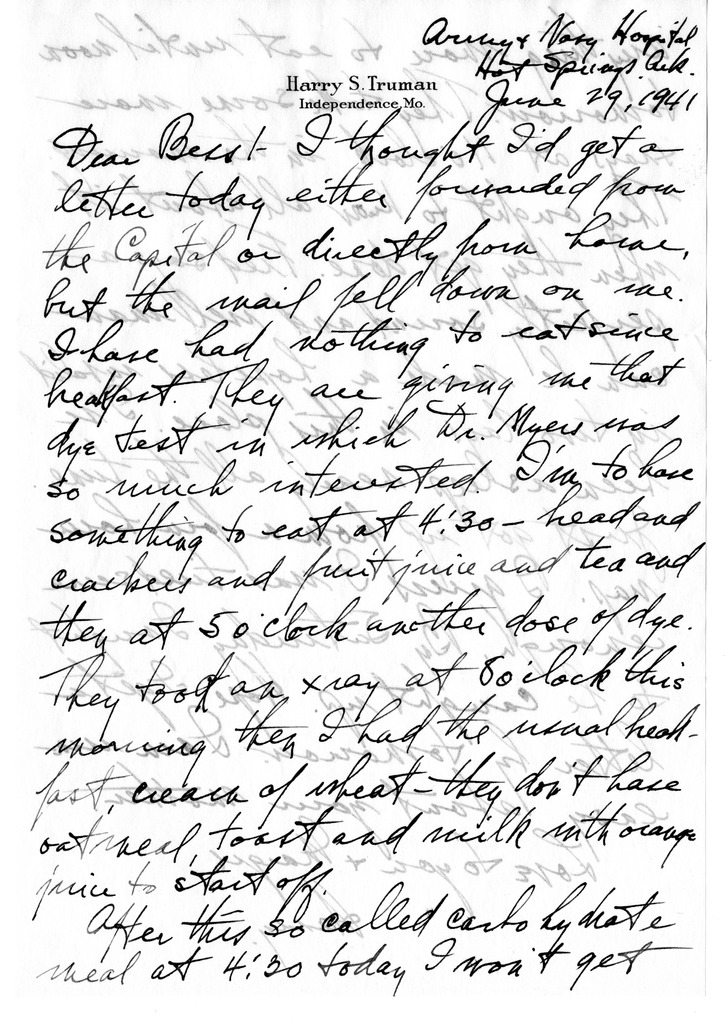 Army & Navy Hospital
Hot Springs, Ark.
Harry S. Truman
Independence, Mo.
June 29, 1941
Dear Bess:- I thought I'd get a
letter today either forwarded from
the Capital or directly from home,
but the mail fell down on me.
I have had nothing to eat since
breakfast. They are giving me that
dye test in which Dr. Myers was
so much interested. I'm to have
something to eat at 4:30 – bread and
crackers and fruit juice and tea and
then at 5 o'clock another dose of dye.
They took an xray at 8 o'clock this
morning then I had the usual break-
fast, cream of wheat – they don't have
oatmeal, toast and milk with orange
juice to start off.
After this so called carbohydrate
meal at 4:30 today I won't get